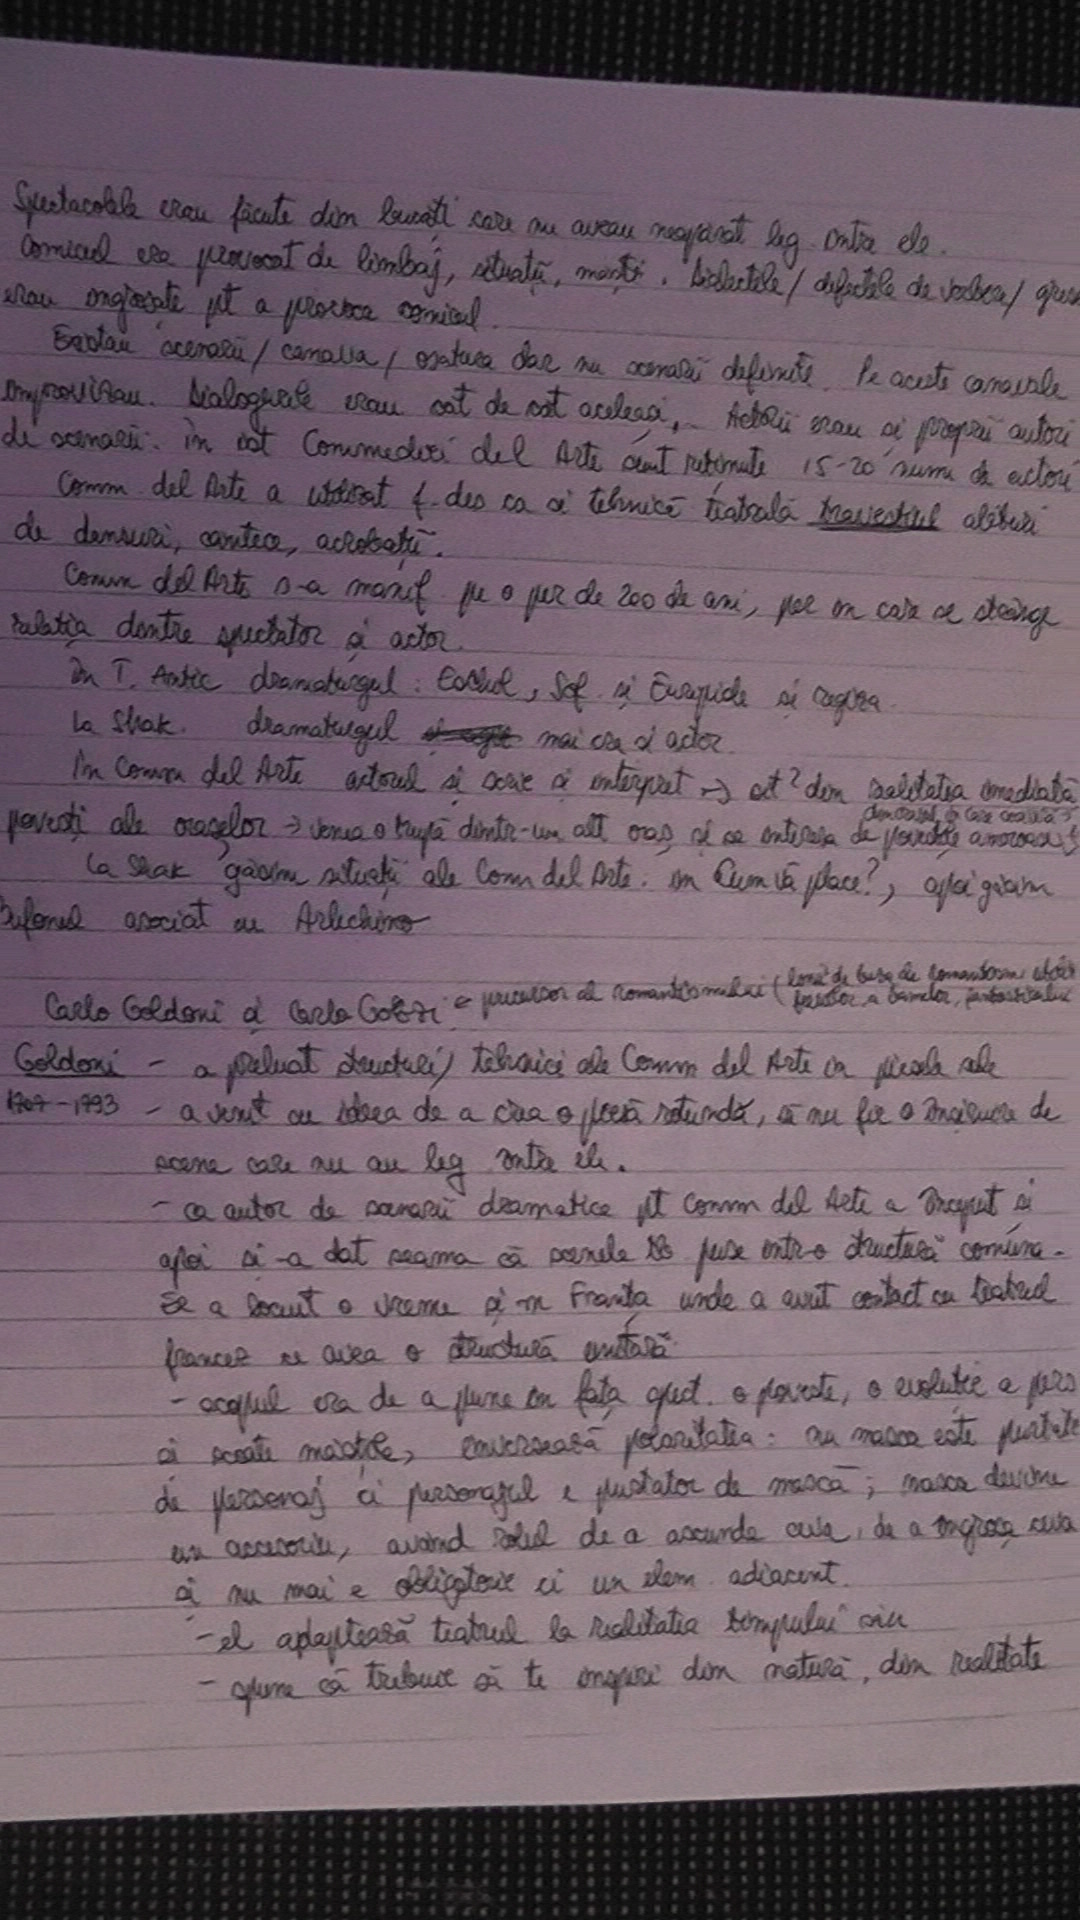 Spectacolele erau făcute din bucăți care nu aveau neapărat leg. între ele.
Comicul era provocat de limbaj, situații, măști. Dialectele / defectele de vorbire /
erau îngroșate pt a provoca comicul.
Existau scenarii / canava / osatura dar nu scenarii definite. Pe aceste canavale
improvizau. Dialogurile erau cât de cât aceleași, Actorii erau și proprii autori
de scenarii. În ist Commediei del Arte sunt reținute 15-20 nume de actori
Comm. del Arte a utilizat f. des ca și tehnică teatrală travestiul alături
de dansuri, cântece, acrobații.
Comm del Arte s-a manif. pe o per de 200 de ani, per în care se strânge
relația dintre spectator și actor.
În T. Antic dramaturgul: Eschil, Sof. și Euripide și regiza
La Shak. dramaturgul mai era și actor.
În Comm del Arte actorul și scrie și interpret → din realitatea imediată
povești ale orașelor → venea o trupă dintr-un alt oraș și se interesa de poveștile amoroase
La Shak găsim situații ale Comm del Arte. în Cum vă place?, apoi găsim
Bufonul asociat cu Arlechino
Carlo Goldoni și Carlo Gozzi e precursor al romantismului
Goldoni - a preluat structuri / tehnici ale Comm del Arte în piesele sale
1707 - 1793 - a venit cu ideea de a crea o piesă rotundă, să nu fie o înșiruire de
scene care nu au leg între ele.
- ca autor de scenarii dramatice pt Comm del Arte a început și
apoi și-a dat seama că scenele tb puse într-o structură comună.
El a locuit o vreme și în Franța unde a avut contact cu teatrul
francez ce avea o structură unitară
- scopul era de a pune în fața spect. o poveste, o evoluție a pers
și scoate măștile, inversează polaritatea: nu masca este purtată
de personaj ci personajul e purtător de mască; masca devine
un accesoriu, având rolul de a ascunde ceva, de a îngroșa ceva
și nu mai e obligatorie ci un elem. adiacent.
- el adaptează teatrul la realitatea timpului său
- spune că trebuie să te inspiri din natură, din realitate